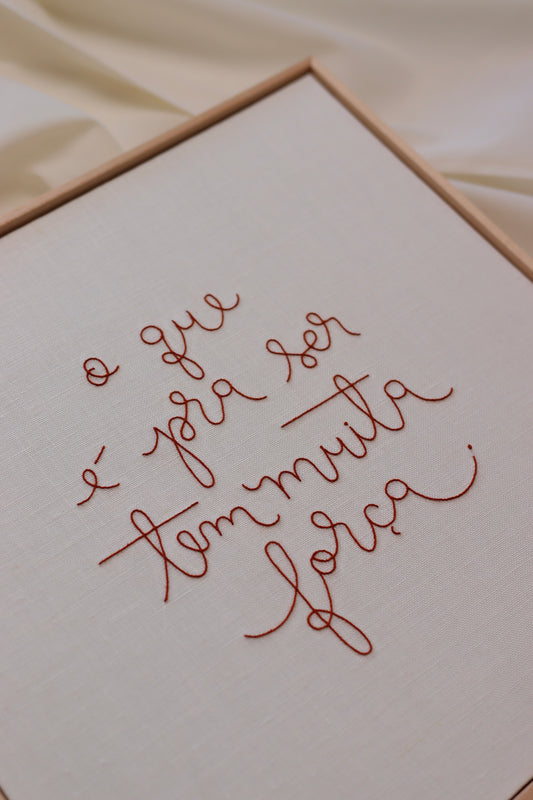 o que
é pra ser
tem muita
força